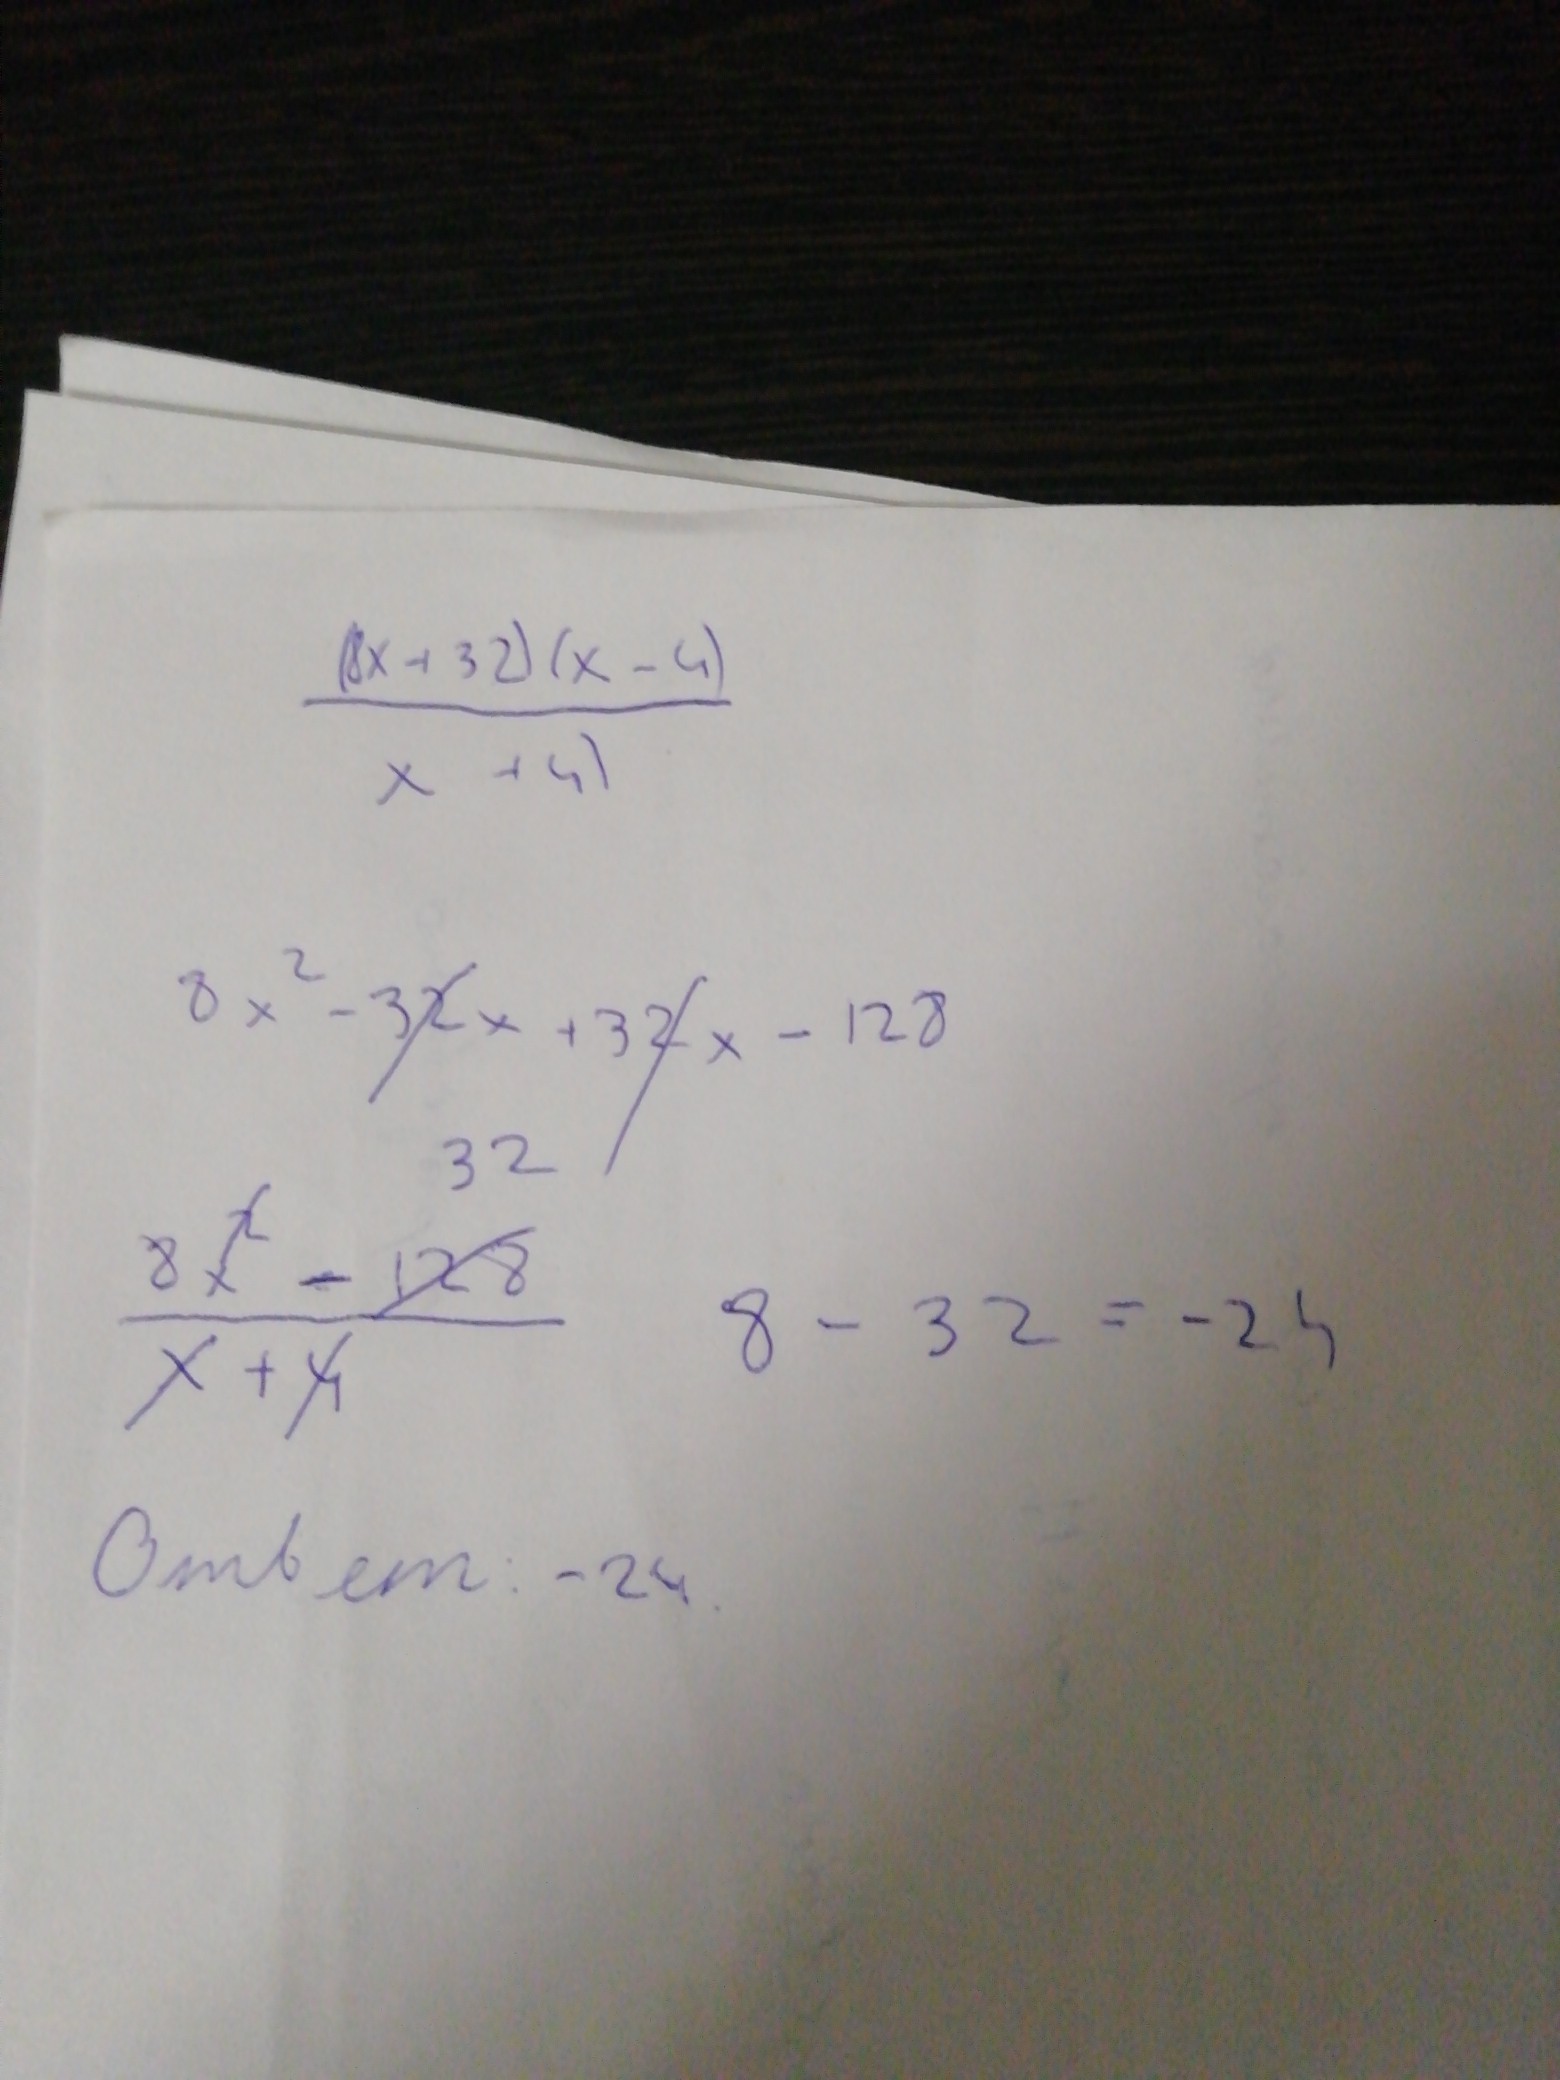 (8x+32)(x-4)
x +4)
8x² - 32x + 32x - 128
32
8x² - 128
x + 4
8 - 32 = -24
Ответ: -24.